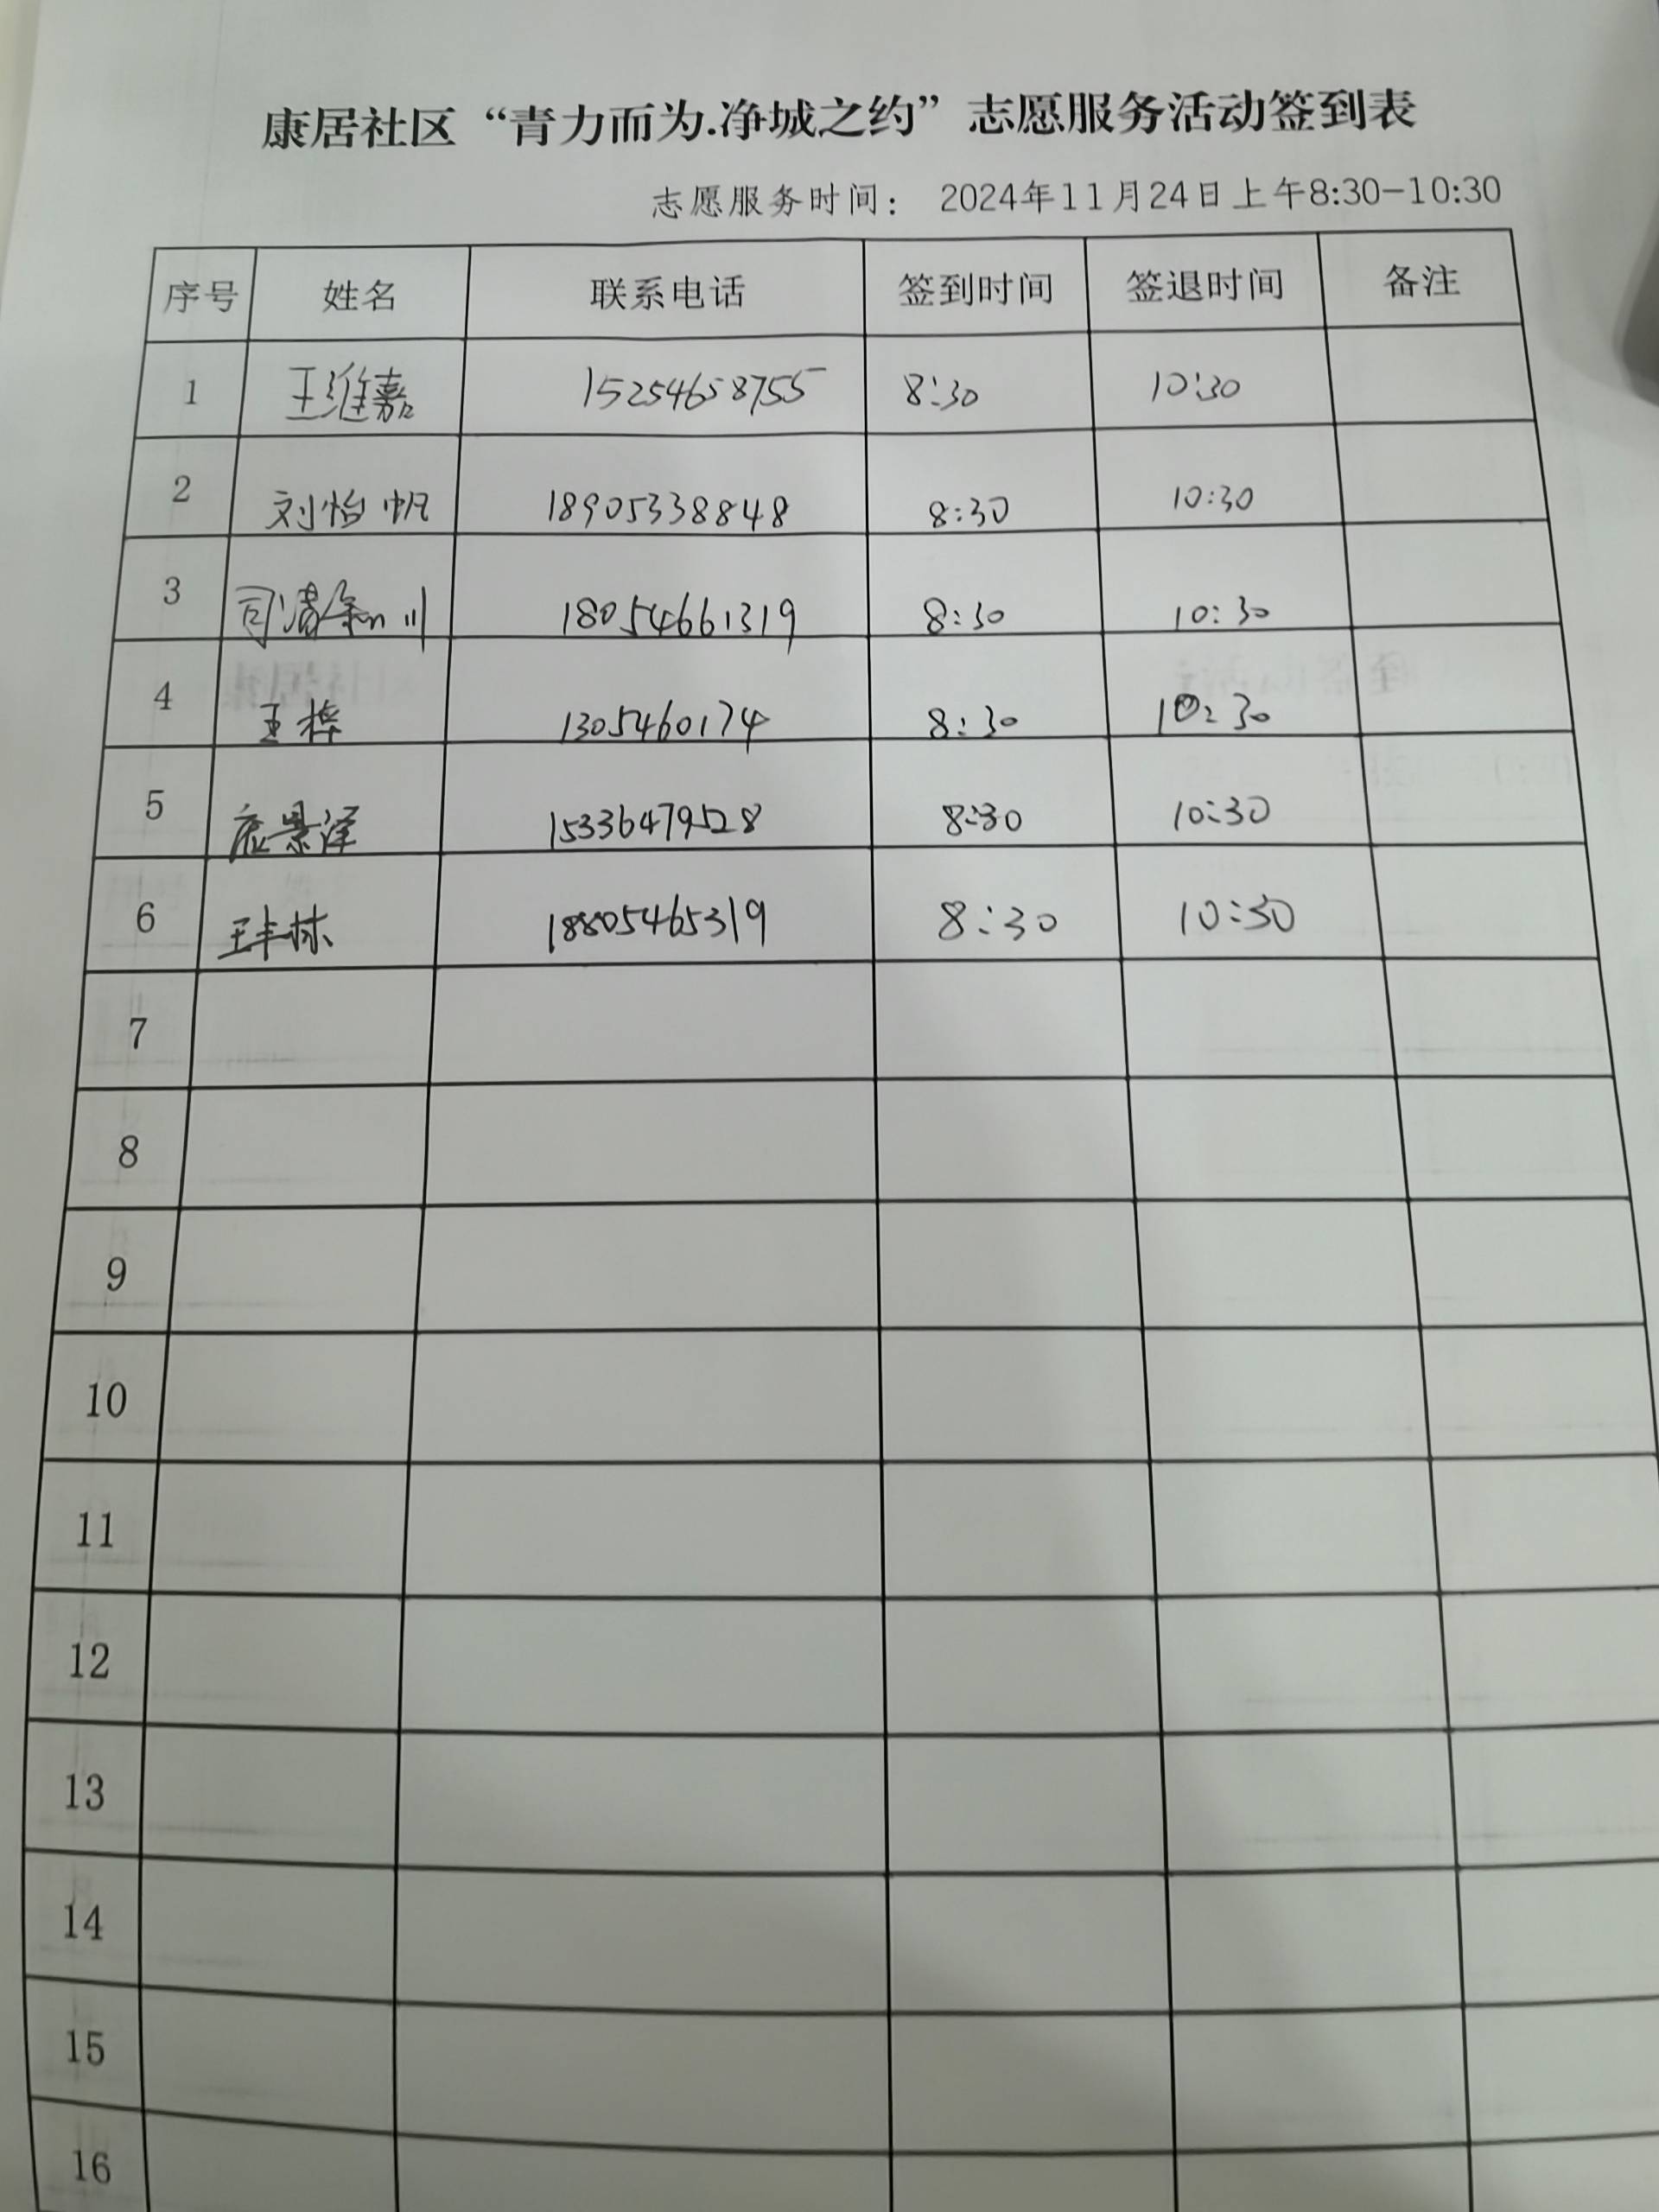 康居社区“青力而为.净城之约”志愿服务活动签到表
志愿服务时间： 2024年11月24日上午8:30-10:30
序号 姓名 联系电话 签到时间 签退时间 备注
1 王进嘉 15254658755 8:30 10:30
2 刘怡帆 18905338848 8:30 10:30
3 司清 川 18054661319 8:30 10:30
4 王梓 1305460174 8:30 10:30
5 景泽 15336479528 8:30 10:30
6 王丰栋 18805465319 8:30 10:30
7
8
9
10
11
12
13
14
15
16